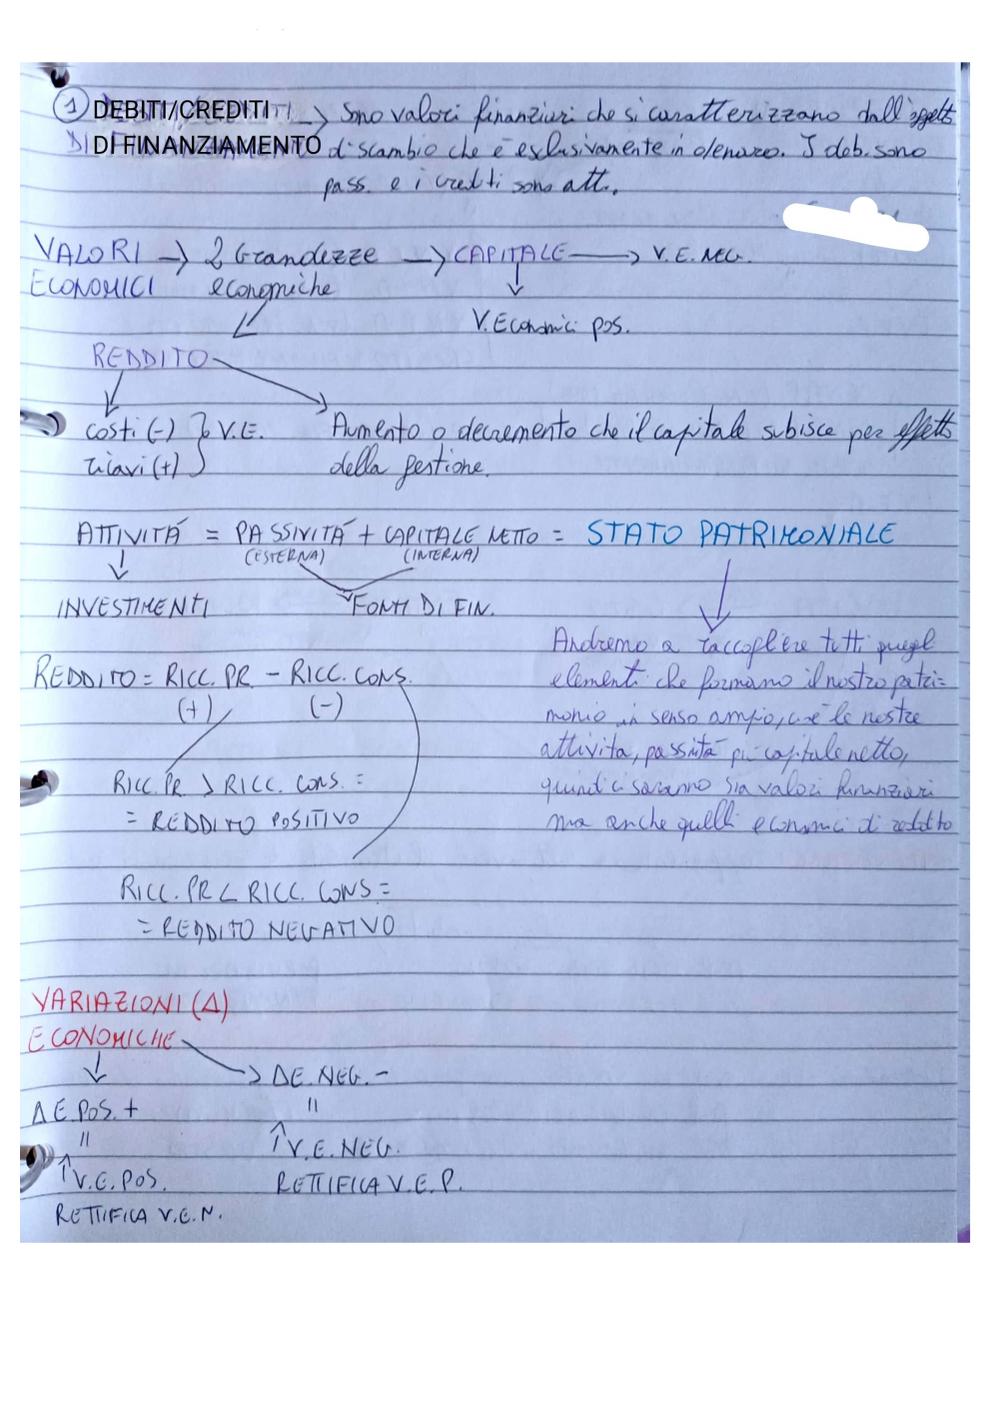 1 DEBITI/CREDITI -> Sono valori finanziari che si caratterizzano dall'oggetto
DI FINANZIAMENTO di scambio che è esclusivamente in denaro. I deb. sono
pass. e i crediti sono att.
VALORI -> 2 Grandezze -> CAPITALE -> V.E. NEG.
ECONOMICI economiche
V. Economici pos.
REDDITO
costi (-) } V.E. Aumento o decremento che il capitale subisce per effetto
ricavi (+) della gestione.
ATTIVITÁ = PASSIVITÁ + CAPITALE NETTO = STATO PATRIMONIALE
(ESTERNA) (INTERNA)
INVESTIMENTI FONTI DI FIN.
Andremo a raccogliere tutti quegl
REDDITO = RICC. PR - RICC. CONS. elementi che formano il nostro patri=
(+) (-) monio in senso ampio, cioè le nostre
attivita, passività più capitale netto,
RICC. PR > RICC. CONS. = quindi ci saranno sia valori finanziari
= REDDITO POSITIVO ma anche quelli economici di reddito
RICC. PR < RICC. CONS =
= REDDITO NEGATIVO
VARIAZIONI (Δ)
ECONOMICHE
-> ΔE. NEG. -
Δ E. POS. + =
= ↑ V.E. NEG.
↑ V.E. POS. RETTIFICA V.E.P.
RETTIFICA V.E.N.